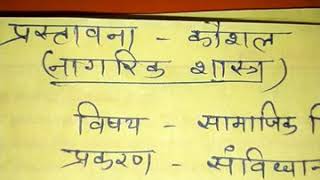 प्रस्तावना - कौशल
(नागरिक शास्त्र)
विषय - सामाजिक
प्रकरण -